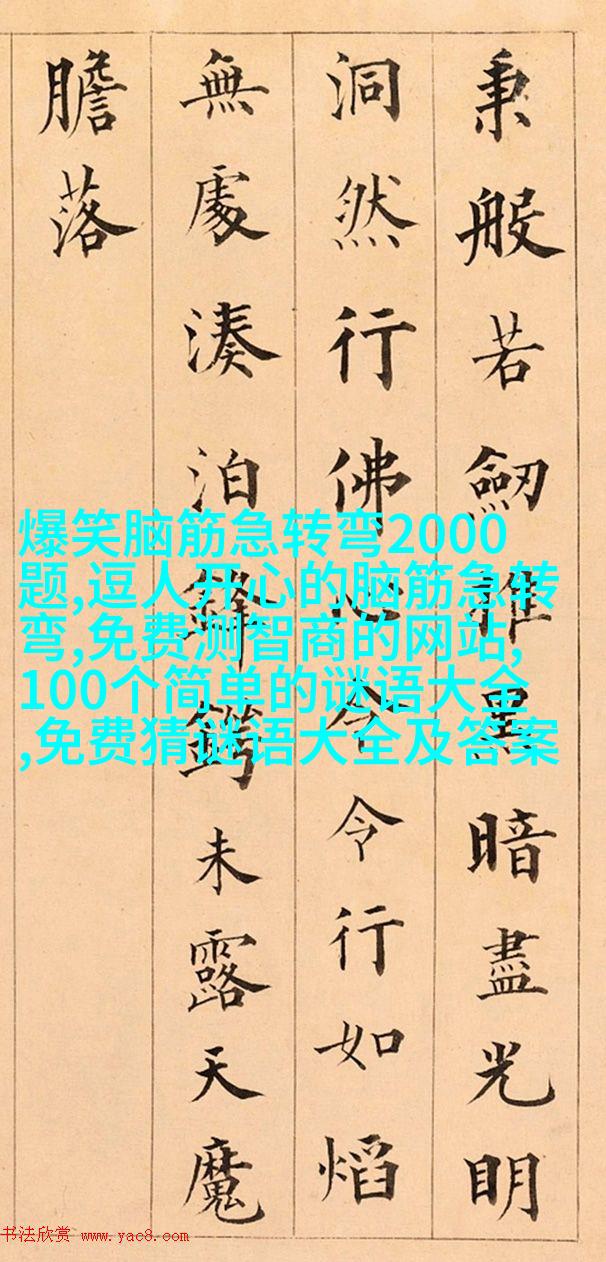 秉般若劒黑暗盡光明
洞然行佛心令令行如焰
無處湊泊鋒鍔未露天魔
膽落
爆笑脑筋急转弯2000
题,逗人开心的脑筋急转
弯,免费测智商的网站,
100个简单的谜语大全
,免费猜谜语大全及答案
书法欣赏 www.yac8.com